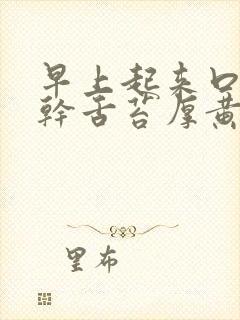 早上起来口
幹舌苔厚黄
里布